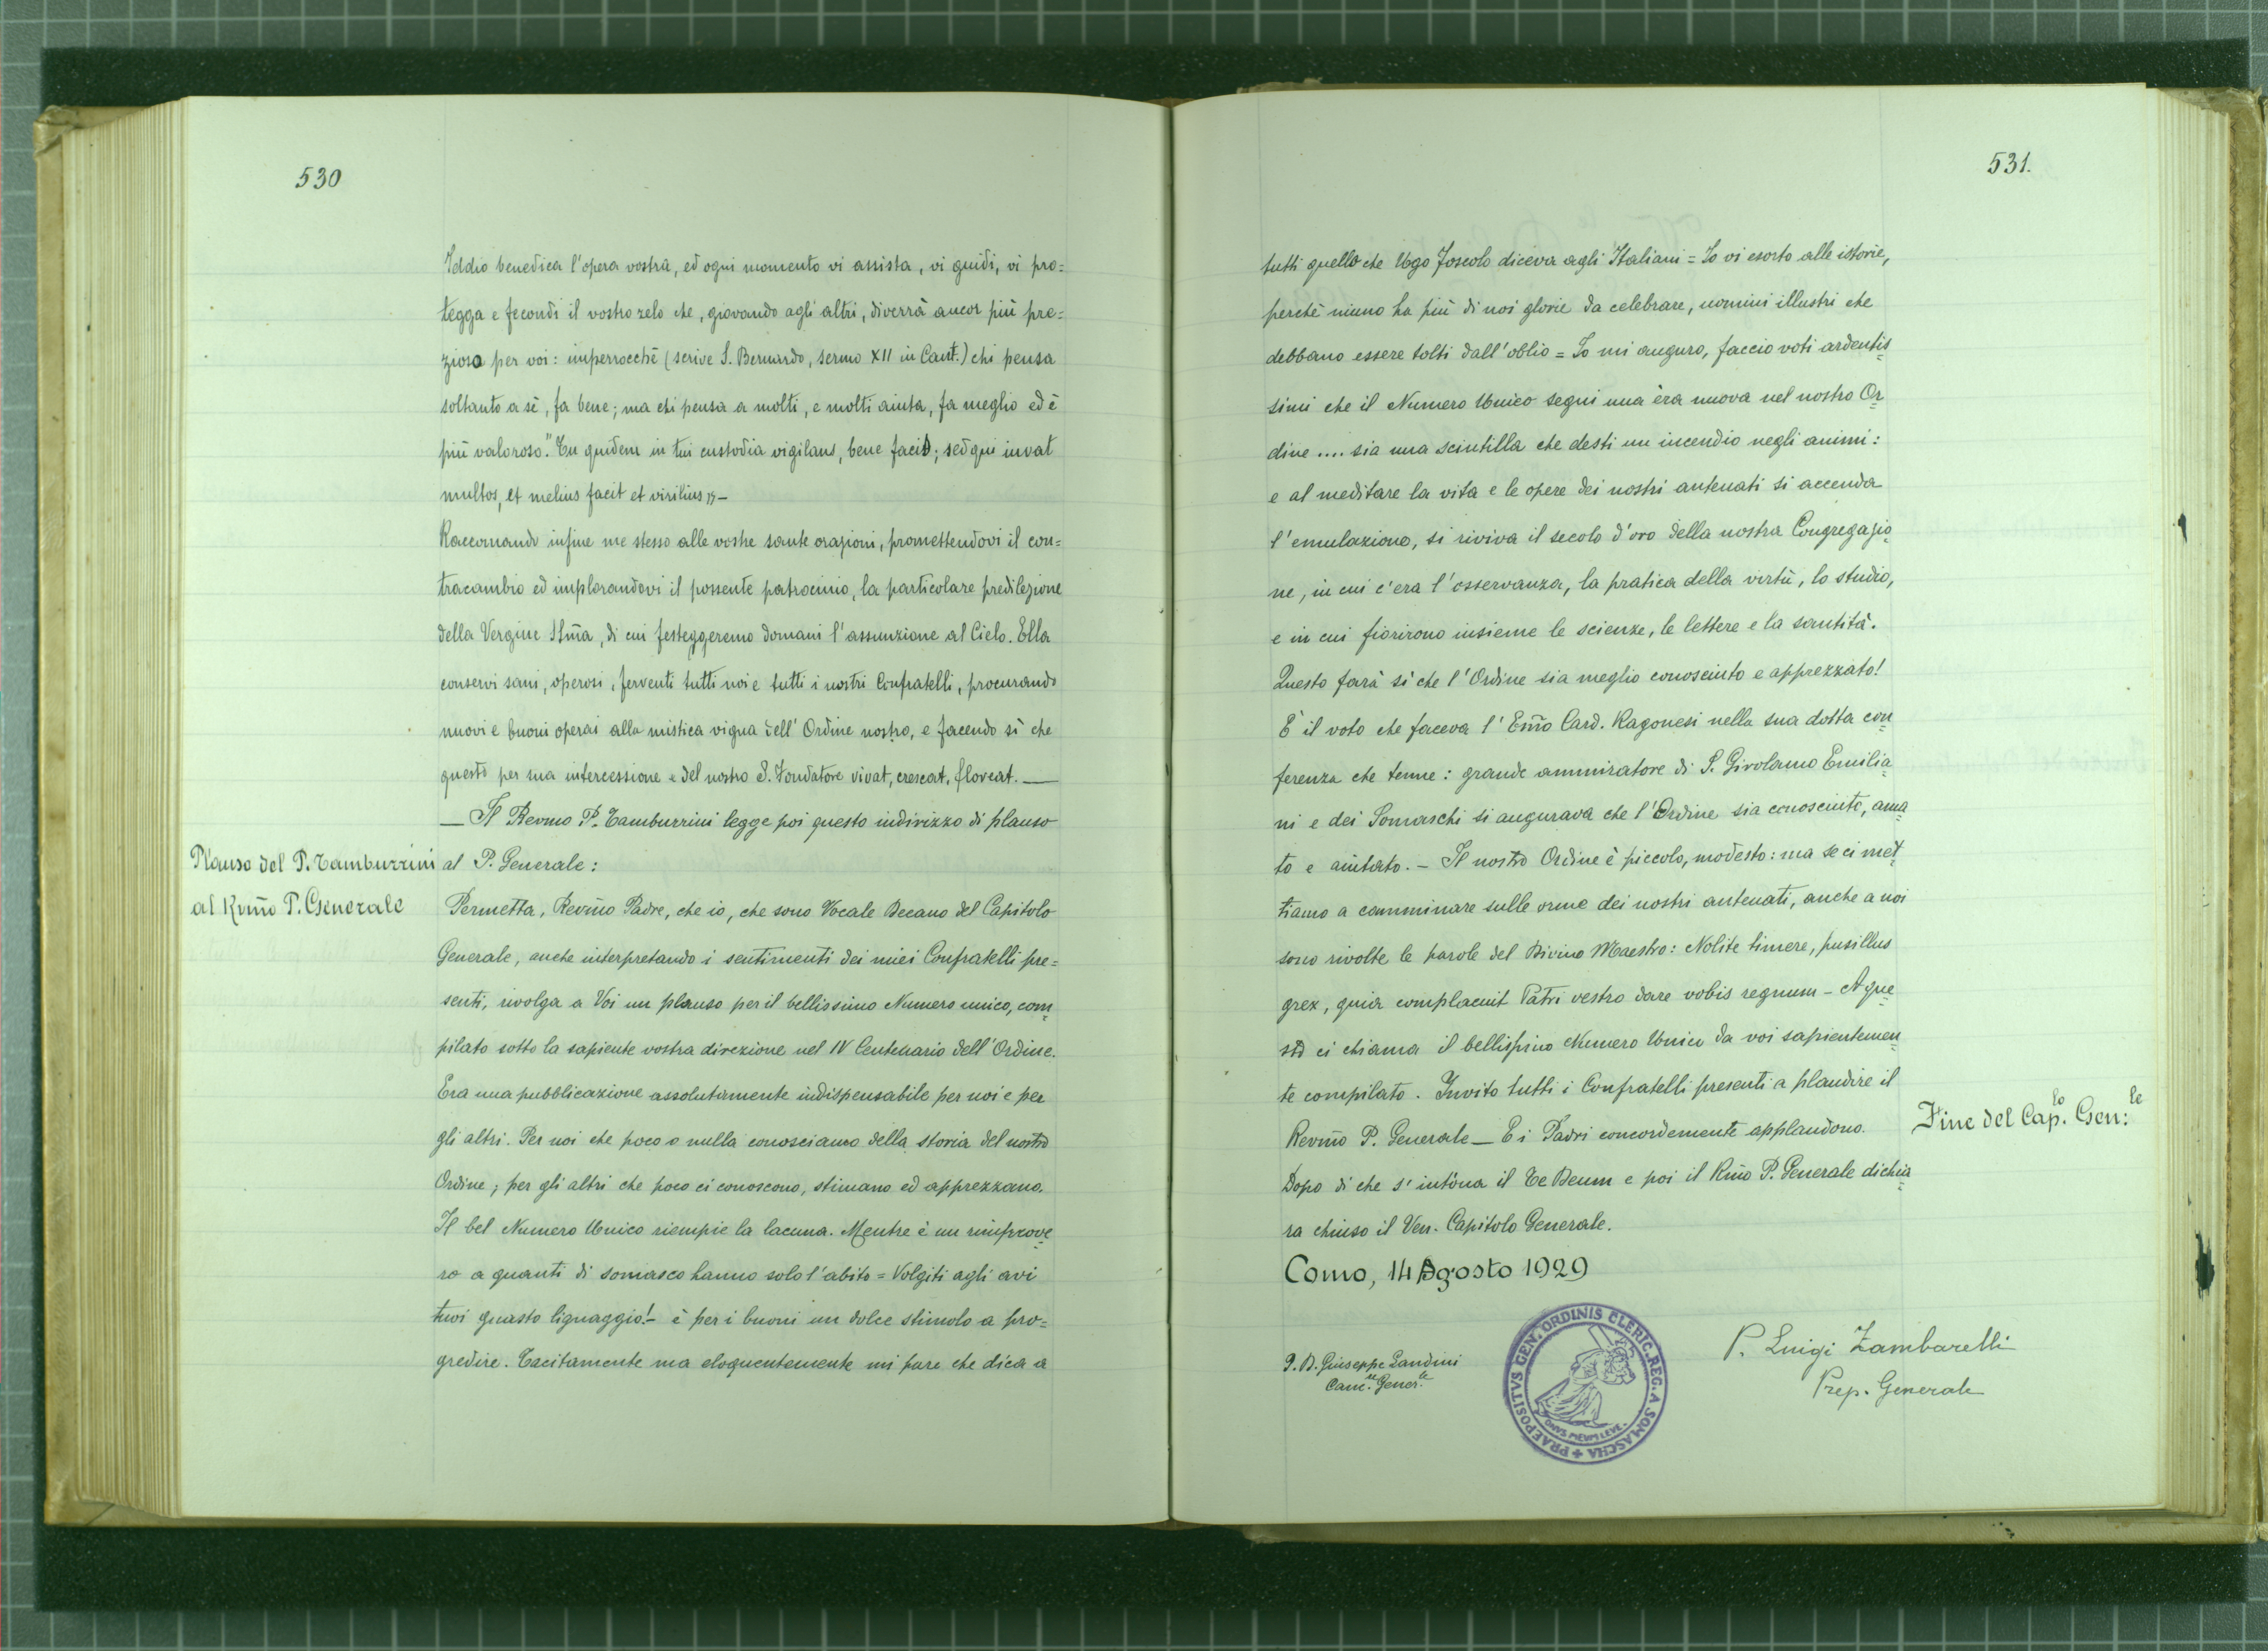 530
Iddio benedica l'opera vostra, ed ogni momento vi assista, vi guidi, vi pro=
tegga e fecondi il vostro zelo che, giovando agli altri, diverrà ancor più pre=
zioso per voi: imperrocchè (scrive S. Bernardo, sermo XII in Cant.) chi pensa
soltanto a sè, fa bene; ma chi pensa a molti, e molti aiuta, fa meglio ed è
più valoroso." Tu quidem in tui custodia vigilans, bene facis; sed qui iuvat
multos, et melius facit et virilius,, —
Raccomando infine me stesso alle vostre sante orazioni, promettendovi il con=
tracambio ed implorandovi il possente patrocinio, la particolare predilezione
della Vergine SSm̃a, di cui festeggeremo domani l'assunzione al Cielo. Ella
conservi sani, operosi, ferventi tutti noi e tutti i nostri Confratelli, procurando
nuovi e buoni operai alla mistica vigna dell'Ordine nostro, e facendo sì che
questo per sua intercessione e del nostro S. Fondatore vivat, crescat, floreat. —
— Il Revmo P. Tamburrini legge poi questo indirizzo di plauso
Plauso del P. Tamburrini
al Rm̃o P. Generale
al P. Generale:
Permetta, Revm̃o Padre, che io, che sono Vocale Decano del Capitolo
Generale, anche interpretando i sentimenti dei miei Confratelli pre=
senti, rivolga a Voi un plauso per il bellissimo Numero unico, com=
pilato sotto la sapiente vostra direzione nel IV Centenario dell'Ordine.
Era una pubblicazione assolutamente indispensabile per noi e per
gli altri. Per noi che poco o nulla conosciamo della storia del nostro
Ordine; per gli altri che poco ci conoscono, stimano ed apprezzano.
Il bel Numero Unico riempie la lacuna. Mentre è un rimprove=
ro a quanti di somasco hanno solo l'abito = Volgiti agli avi
tuoi guasto lignaggio! – è per i buoni un dolce stimolo a pro=
gredire. Tacitamente ma eloquentemente mi pare che dica a
531.
tutti quello che Ugo Foscolo diceva agli Italiani = Io vi esorto alle istorie,
perchè niuno ha più di noi glorie da celebrare, uomini illustri che
debbano essere tolti dall'oblio = Io mi auguro, faccio voti ardentis=
simi che il Numero Unico segni una èra nuova nel nostro Or=
dine .... sia una scintilla che desti un incendio negli animi:
e al meditare la vita e le opere dei nostri antenati si accenda
l'emulazione, si riviva il secolo d'oro della nostra Congregazio=
ne, in cui c'era l'osservanza, la pratica della virtù, lo studio,
e in cui fiorirono insieme le scienze, le lettere e la santità.
Questo farà sì che l'Ordine sia meglio conosciuto e apprezzato!
È il voto che faceva l'Em̃o Card. Ragonesi nella sua dotta con=
ferenza che tenne: grande ammiratore di S. Girolamo Emilia=
ni e dei Somaschi si augurava che l'Ordine sia conosciuto, ama=
to e aiutato. – Il nostro Ordine è piccolo, modesto: ma se ci met=
tiamo a camminare sulle orme dei nostri antenati, anche a noi
sono rivolte le parole del Divino Maestro: Nolite timere, pusillus
grex, quia complacuit Patri vestro dare vobis regnum – A que=
sto ci chiama il bellissimo Numero Unico da voi sapientemen=
te compilato. Invito tutti i Confratelli presenti a plaudire il
Revm̃o P. Generale — E i Padri concordemente applaudono.
Fine del Cap.lo Gen:le
Dopo di che s'intòna il Te Deum e poi il Rm̃o P. Generale dichia=
ra chiuso il Ven. Capitolo Generale.
Como, 14 Agosto 1929
P. Luigi Zambarelli
Prep. Generale
P. D. Giuseppe Landini
Canc.re Gener.le
PRAEPOSITVS GEN. ORDINIS CLERIC. REG. A SOMASCHA
ONVS MEVM LEVE